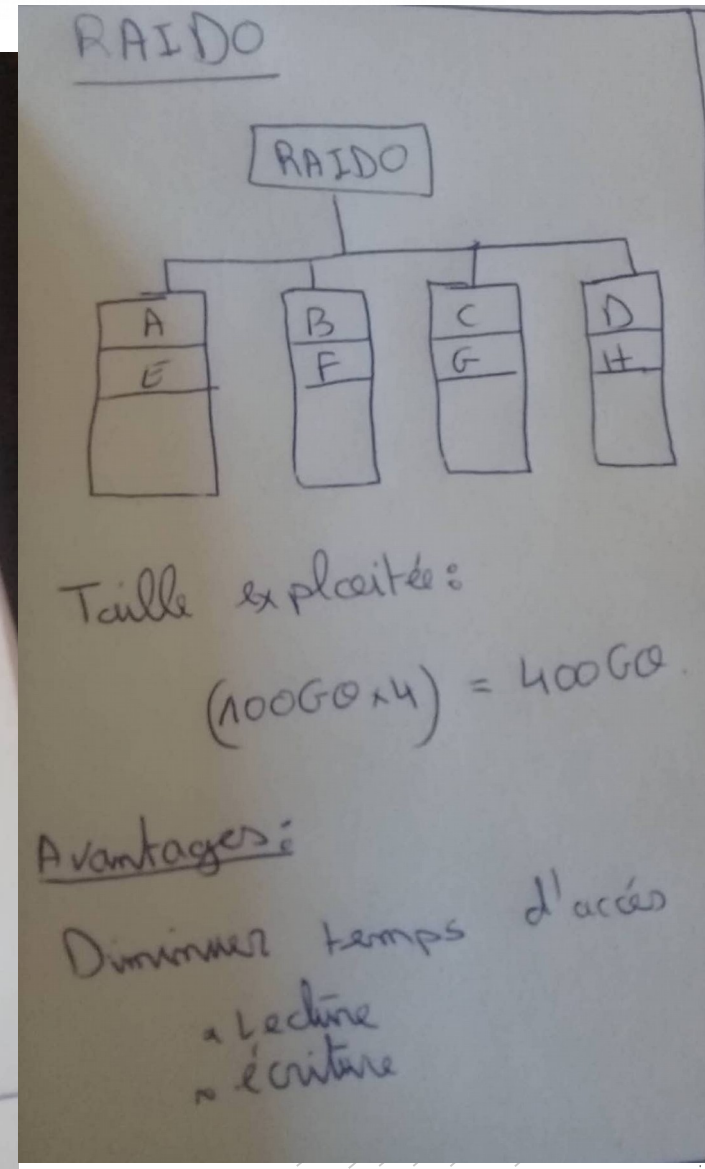 RAID0
RAID0
A B C D
E F G H
Taille exploitée:
(100GO x 4) = 400GO.
Avantages:
Diminuer temps d'accés
• Lecture
• écriture